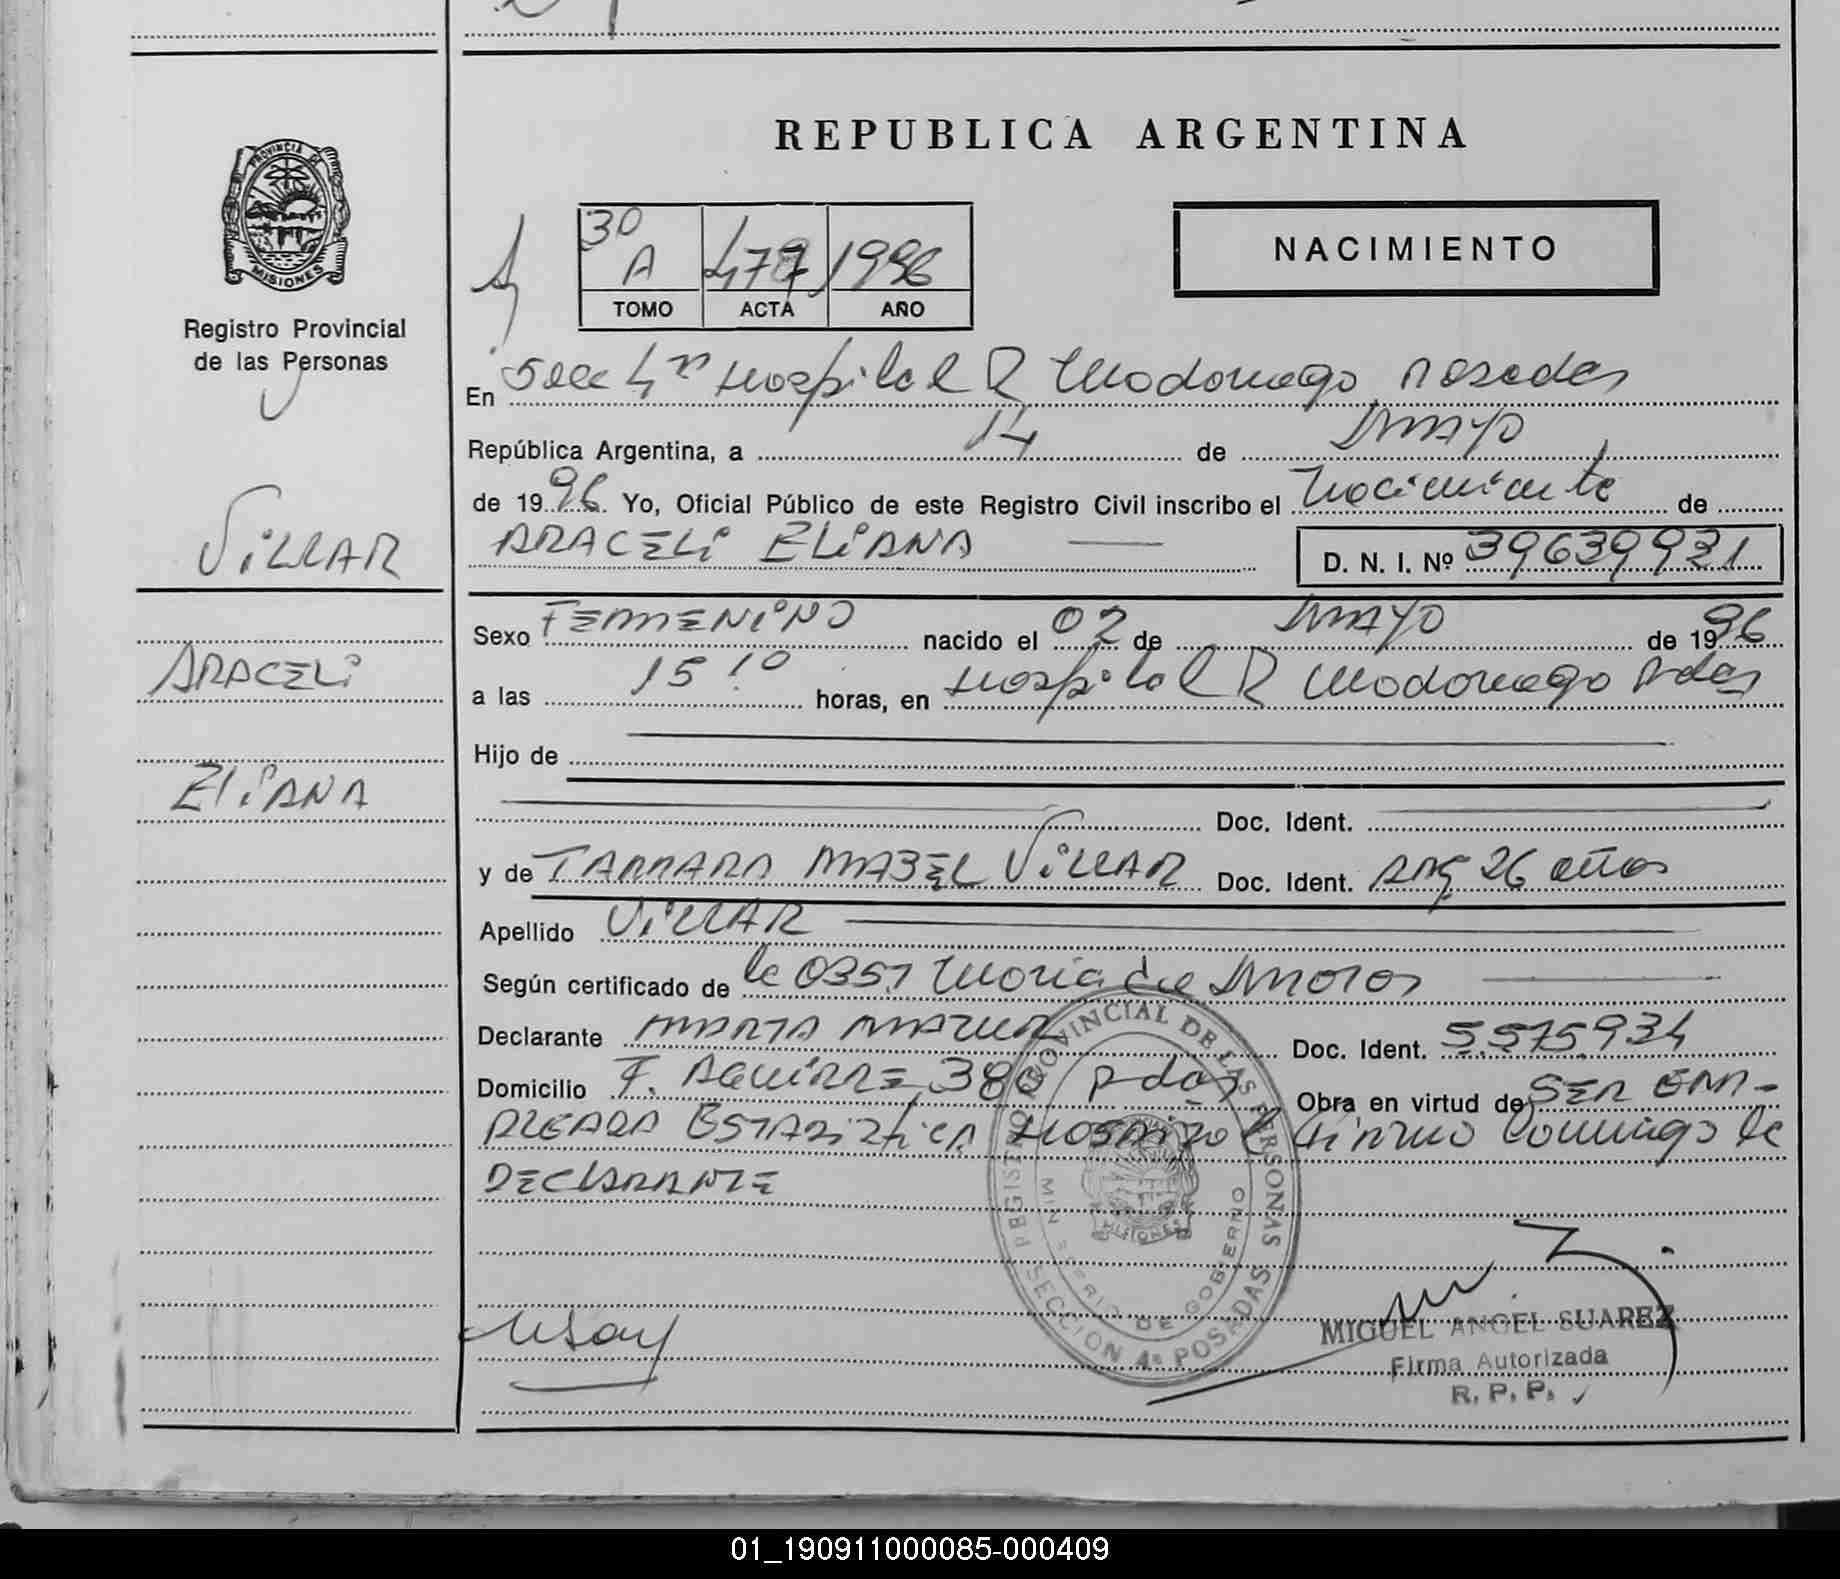 REPUBLICA ARGENTINA
PROVINCIA DE
MISIONES
Registro Provincial
de las Personas
NACIMIENTO
30
A 1996
TOMO ACTA AÑO
En Secc 4ª Hospital R Madariaga Posadas
República Argentina, a 14 de MAYO
de 1996. Yo, Oficial Público de este Registro Civil inscribo el Nacimiento de
ARACELI ELIANA D. N. I. Nº 39639931
VILLAR
Sexo FEMMENINO nacido el 02 de MAYO de 1996
ARACELI
a las 15:10 horas, en Hospital R Madariaga Pdas
Hijo de
ELIANA
Doc. Ident.
y de TAMARA MABEL VILLAR Doc. Ident. ARG 26 años
Apellido VILLAR
Según certificado de lc 0351 Maria de
Declarante MARTA Doc. Ident. 5.575.934
Domicilio F. AGUIRRE 380 Pdas Obra en virtud de SER EM-
PLEADA Hospital le
DECLARANTE
REGISTRO PROVINCIAL DE LAS PERSONAS
MINISTERIO DE GOBIERNO
MISIONES
SECCION 4ª POSADAS
MIGUEL ANGEL SUAREZ
Firma Autorizada
R. P. P.
01_190911000085-000409